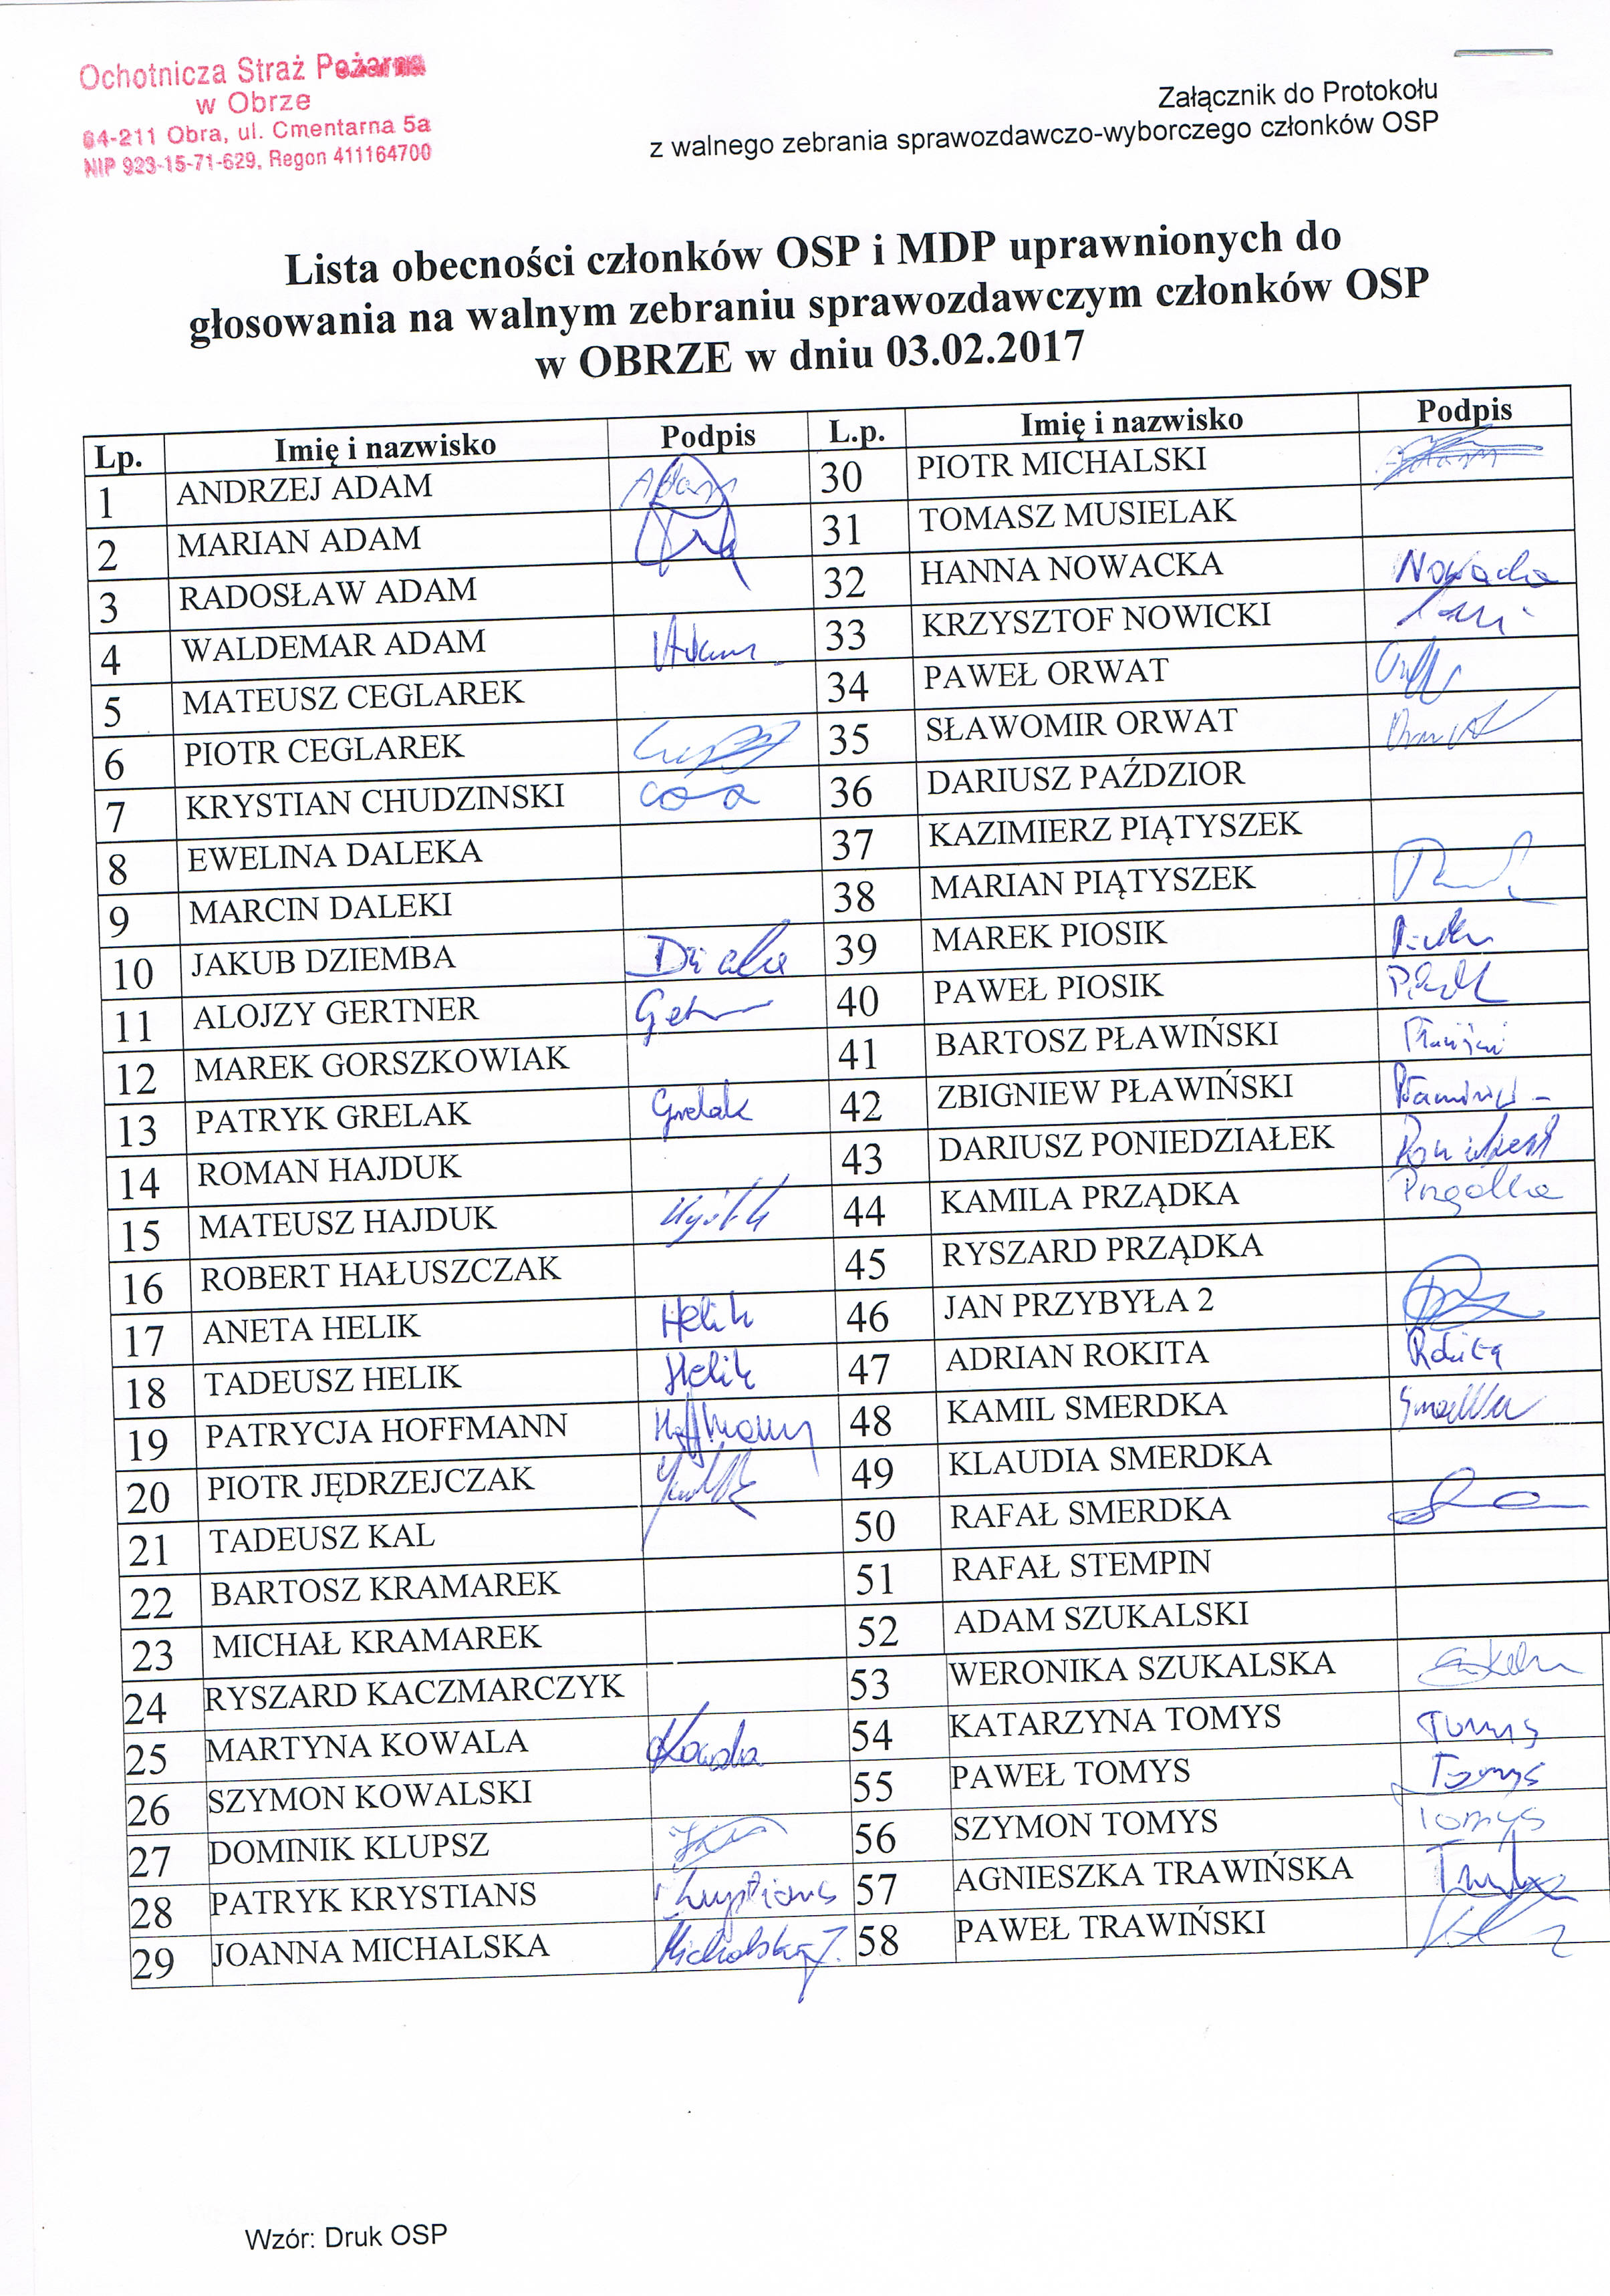 Ochotnicza Straż Pożarna
w Obrze
64-211 Obra, ul. Cmentarna 5a
NIP 923-15-71-629, Regon 411164700
Załącznik do Protokołu
z walnego zebrania sprawozdawczo-wyborczego członków OSP
Lista obecności członków OSP i MDP uprawnionych do
głosowania na walnym zebraniu sprawozdawczym członków OSP
w OBRZE w dniu 03.02.2017
Lp. Imię i nazwisko Podpis L.p. Imię i nazwisko Podpis
1 ANDRZEJ ADAM Adam 30 PIOTR MICHALSKI
2 MARIAN ADAM 31 TOMASZ MUSIELAK
3 RADOSŁAW ADAM 32 HANNA NOWACKA Nowacka
4 WALDEMAR ADAM Adam 33 KRZYSZTOF NOWICKI
5 MATEUSZ CEGLAREK 34 PAWEŁ ORWAT
6 PIOTR CEGLAREK 35 SŁAWOMIR ORWAT
7 KRYSTIAN CHUDZINSKI 36 DARIUSZ PAŹDZIOR
8 EWELINA DALEKA 37 KAZIMIERZ PIĄTYSZEK
9 MARCIN DALEKI 38 MARIAN PIĄTYSZEK
10 JAKUB DZIEMBA 39 MAREK PIOSIK
11 ALOJZY GERTNER 40 PAWEŁ PIOSIK
12 MAREK GORSZKOWIAK 41 BARTOSZ PŁAWIŃSKI
13 PATRYK GRELAK Grelak 42 ZBIGNIEW PŁAWIŃSKI
14 ROMAN HAJDUK 43 DARIUSZ PONIEDZIAŁEK
15 MATEUSZ HAJDUK 44 KAMILA PRZĄDKA
16 ROBERT HAŁUSZCZAK 45 RYSZARD PRZĄDKA
17 ANETA HELIK Helik 46 JAN PRZYBYŁA 2
18 TADEUSZ HELIK Helik 47 ADRIAN ROKITA Rokita
19 PATRYCJA HOFFMANN Hoffmann 48 KAMIL SMERDKA
20 PIOTR JĘDRZEJCZAK 49 KLAUDIA SMERDKA
21 TADEUSZ KAL 50 RAFAŁ SMERDKA
22 BARTOSZ KRAMAREK 51 RAFAŁ STEMPIN
23 MICHAŁ KRAMAREK 52 ADAM SZUKALSKI
24 RYSZARD KACZMARCZYK 53 WERONIKA SZUKALSKA
25 MARTYNA KOWALA Kowala 54 KATARZYNA TOMYS Tomys
26 SZYMON KOWALSKI 55 PAWEŁ TOMYS Tomys
27 DOMINIK KLUPSZ 56 SZYMON TOMYS Tomys
28 PATRYK KRYSTIANS Krystians 57 AGNIESZKA TRAWIŃSKA
29 JOANNA MICHALSKA Michalska J. 58 PAWEŁ TRAWIŃSKI
Wzór: Druk OSP